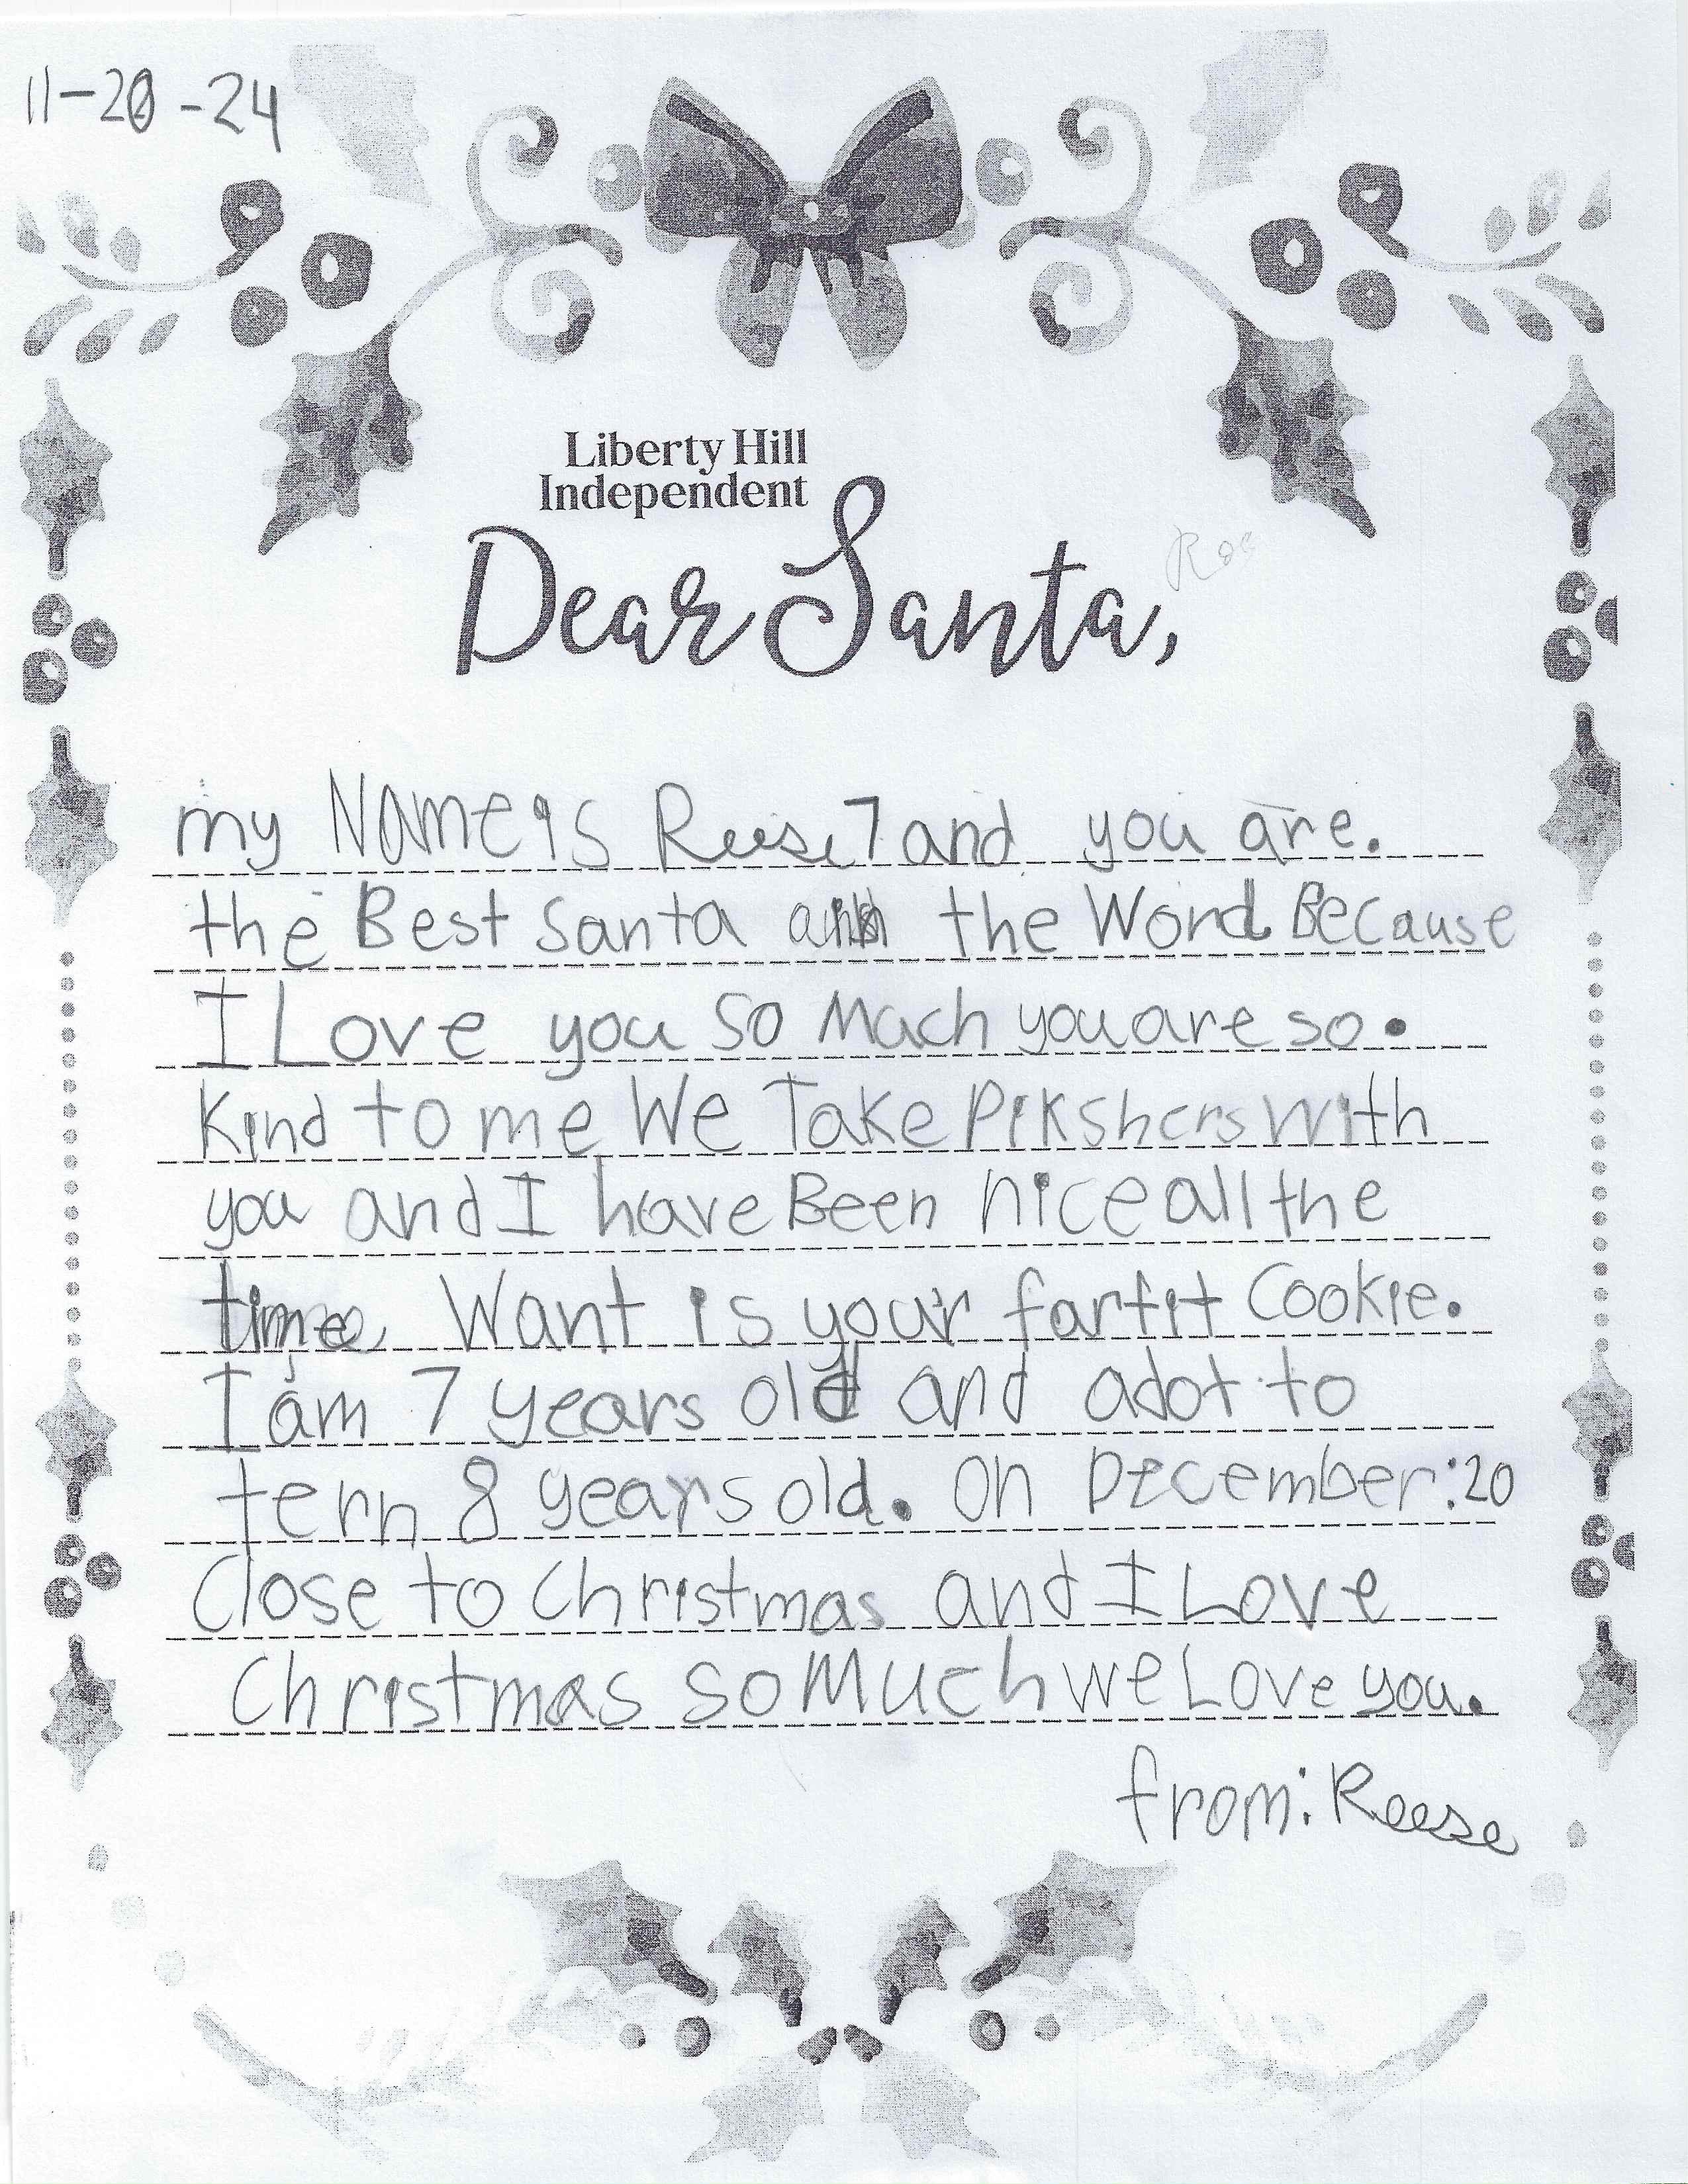 11-20-24
Liberty Hill
Independent
Dear Santa,
my Name is Reese 7 and you are.
the Best Santa in the Word Because
I Love you so Mach you are so.
Kind to me We Take Pikshers with
you and I have Been nice all the
time Want is your farfit Cookie.
I am 7 years old and adot to
tern 8 years old. On December:20
Close to Christmas and I Love
Christmas so Much we Love you.
from: Reese